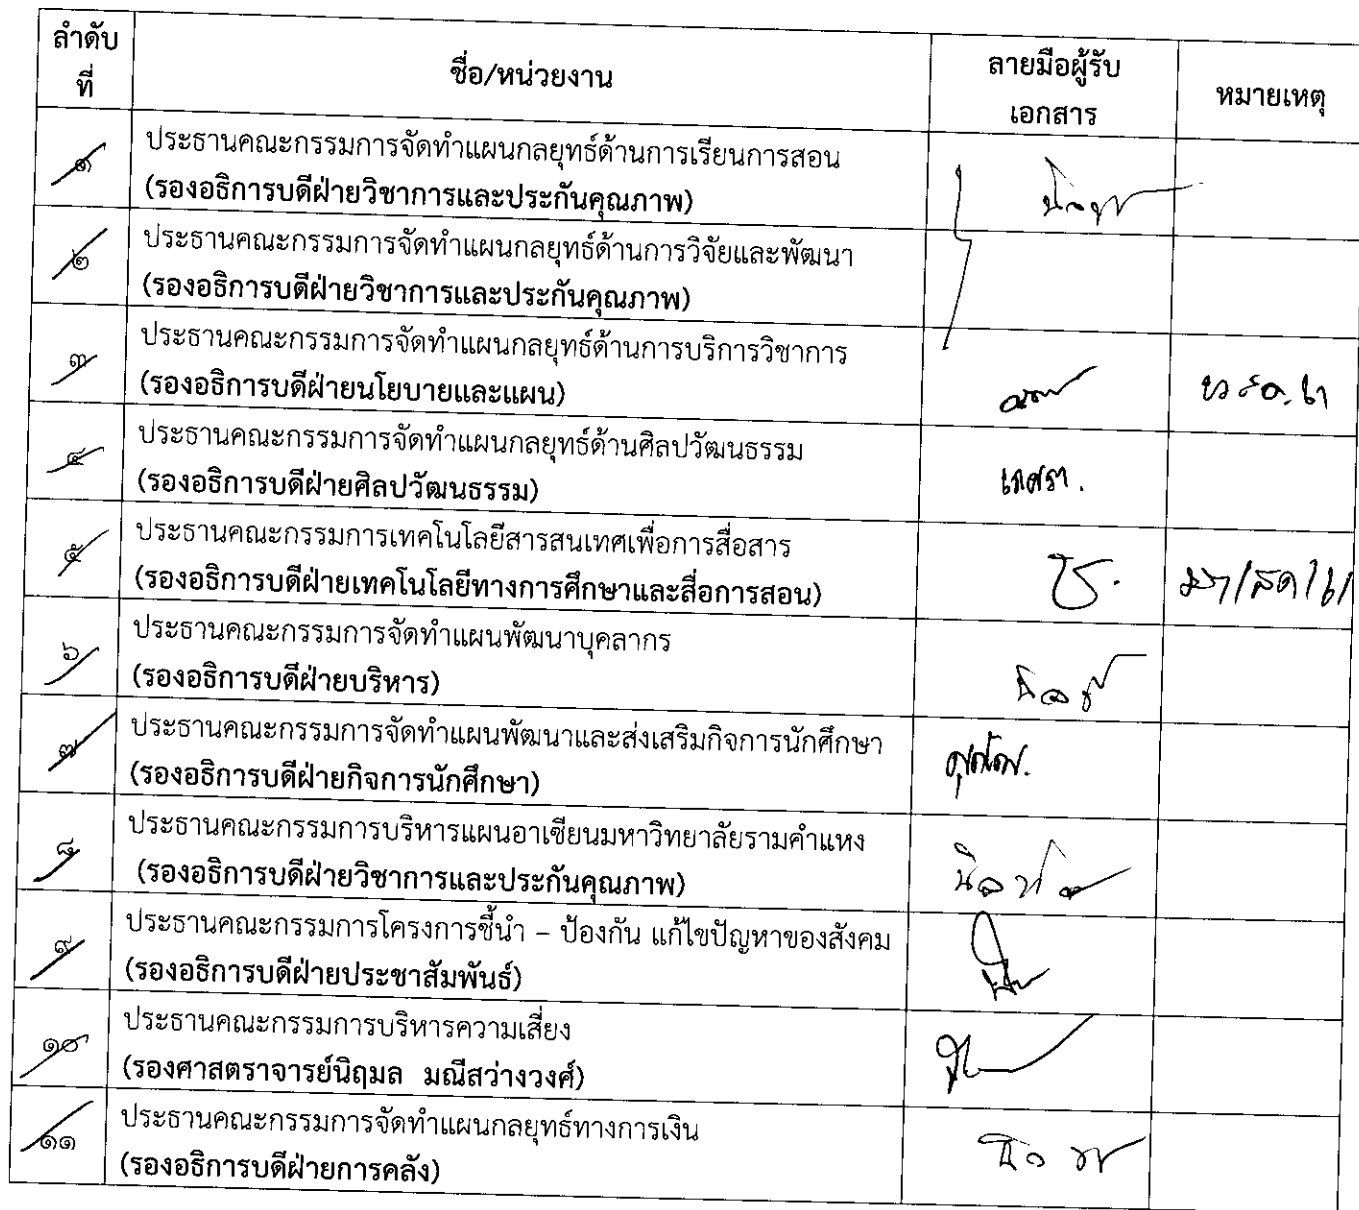 ลำดับ
ที่
ชื่อ/หน่วยงาน
ลายมือผู้รับ
เอกสาร
หมายเหตุ
๑
ประธานคณะกรรมการจัดทำแผนกลยุทธ์ด้านการเรียนการสอน
(รองอธิการบดีฝ่ายวิชาการและประกันคุณภาพ)
๒
ประธานคณะกรรมการจัดทำแผนกลยุทธ์ด้านการวิจัยและพัฒนา
(รองอธิการบดีฝ่ายวิชาการและประกันคุณภาพ)
๓
ประธานคณะกรรมการจัดทำแผนกลยุทธ์ด้านการบริการวิชาการ
(รองอธิการบดีฝ่ายนโยบายและแผน)
๔
ประธานคณะกรรมการจัดทำแผนกลยุทธ์ด้านศิลปวัฒนธรรม
(รองอธิการบดีฝ่ายศิลปวัฒนธรรม)
๕
ประธานคณะกรรมการเทคโนโลยีสารสนเทศเพื่อการสื่อสาร
(รองอธิการบดีฝ่ายเทคโนโลยีทางการศึกษาและสื่อการสอน)
๖
ประธานคณะกรรมการจัดทำแผนพัฒนาบุคลากร
(รองอธิการบดีฝ่ายบริหาร)
๗
ประธานคณะกรรมการจัดทำแผนพัฒนาและส่งเสริมกิจการนักศึกษา
(รองอธิการบดีฝ่ายกิจการนักศึกษา)
๘
ประธานคณะกรรมการบริหารแผนอาเซียนมหาวิทยาลัยรามคำแหง
(รองอธิการบดีฝ่ายวิชาการและประกันคุณภาพ)
๙
ประธานคณะกรรมการโครงการชี้นำ – ป้องกัน แก้ไขปัญหาของสังคม
(รองอธิการบดีฝ่ายประชาสัมพันธ์)
๑๐
ประธานคณะกรรมการบริหารความเสี่ยง
(รองศาสตราจารย์นิฤมล มณีสว่างวงศ์)
๑๑
ประธานคณะกรรมการจัดทำแผนกลยุทธ์ทางการเงิน
(รองอธิการบดีฝ่ายการคลัง)